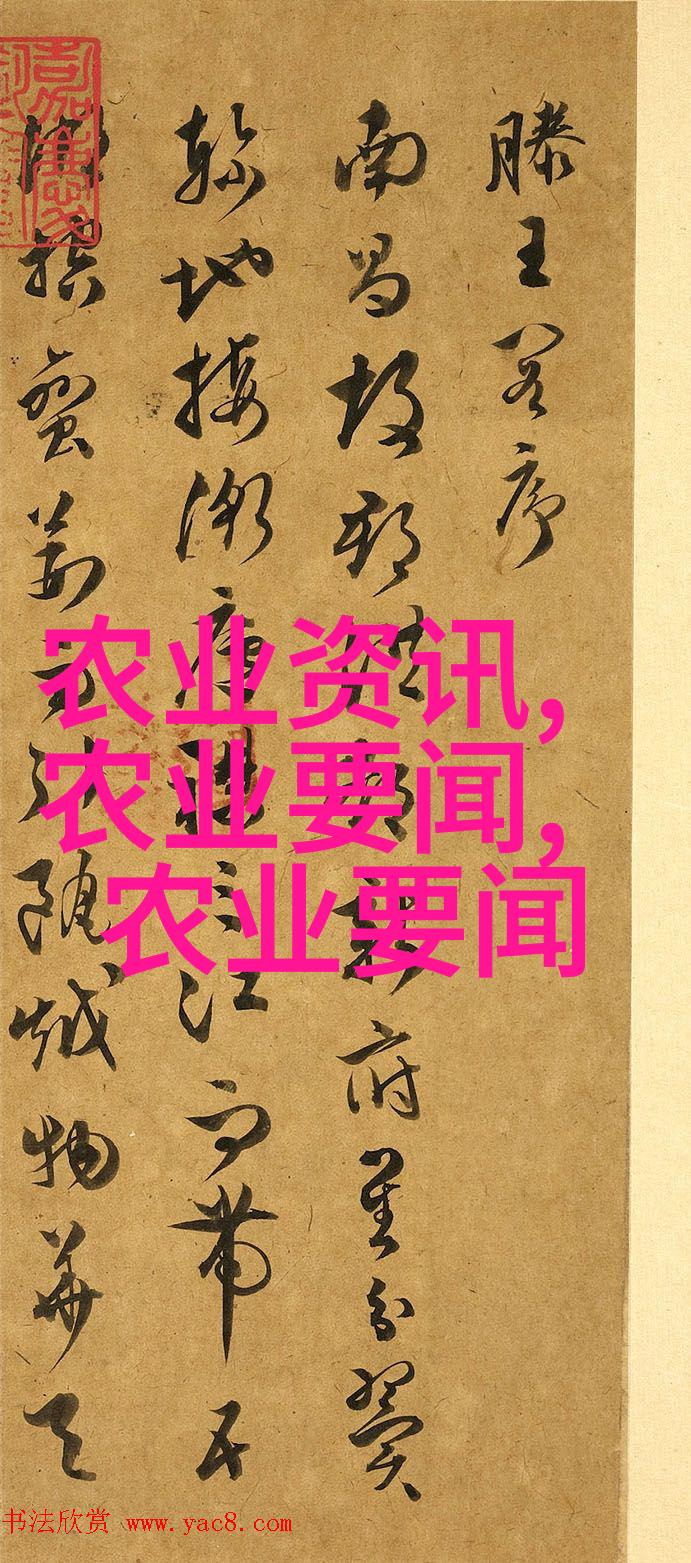 滕王閣序
南昌故郡洪都新府星分翼
軫地接衡廬襟三江而帶五
湖控蠻荊而引甌越物華天
农业资讯,
农业要闻,
农业要闻
书法欣赏 www.yac8.com